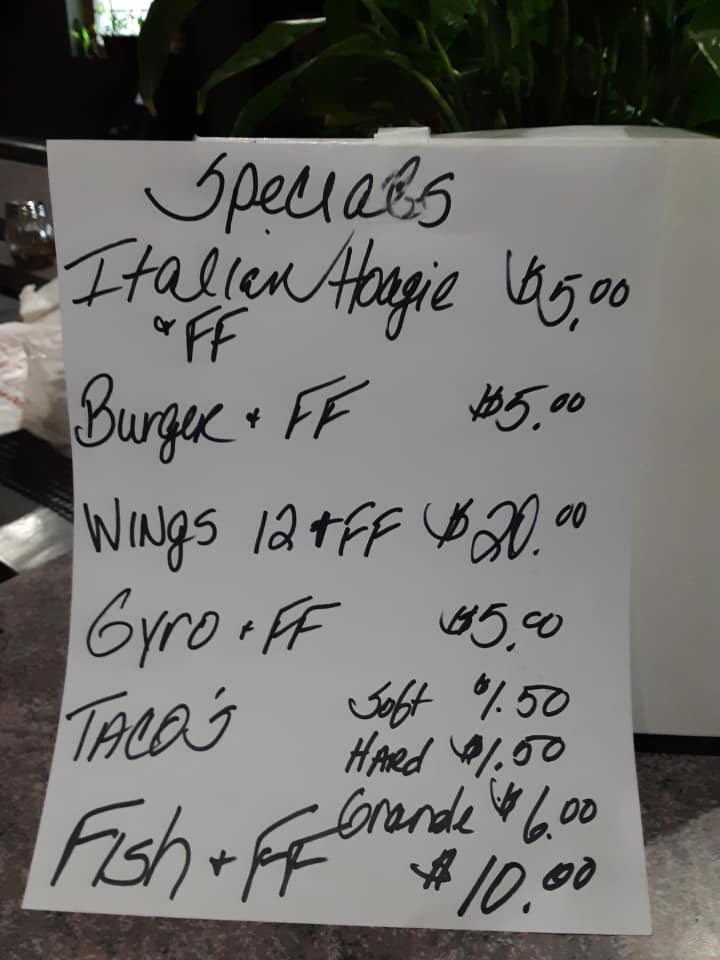 Specials
Italian Hoagie $5.00
& FF
Burger + FF $5.00
WINgS 12 + FF $20.00
Gyro + FF $5.00
TACO'S Soft $1.50
HARD $1.50
Grande $6.00
Fish + FF $10.00